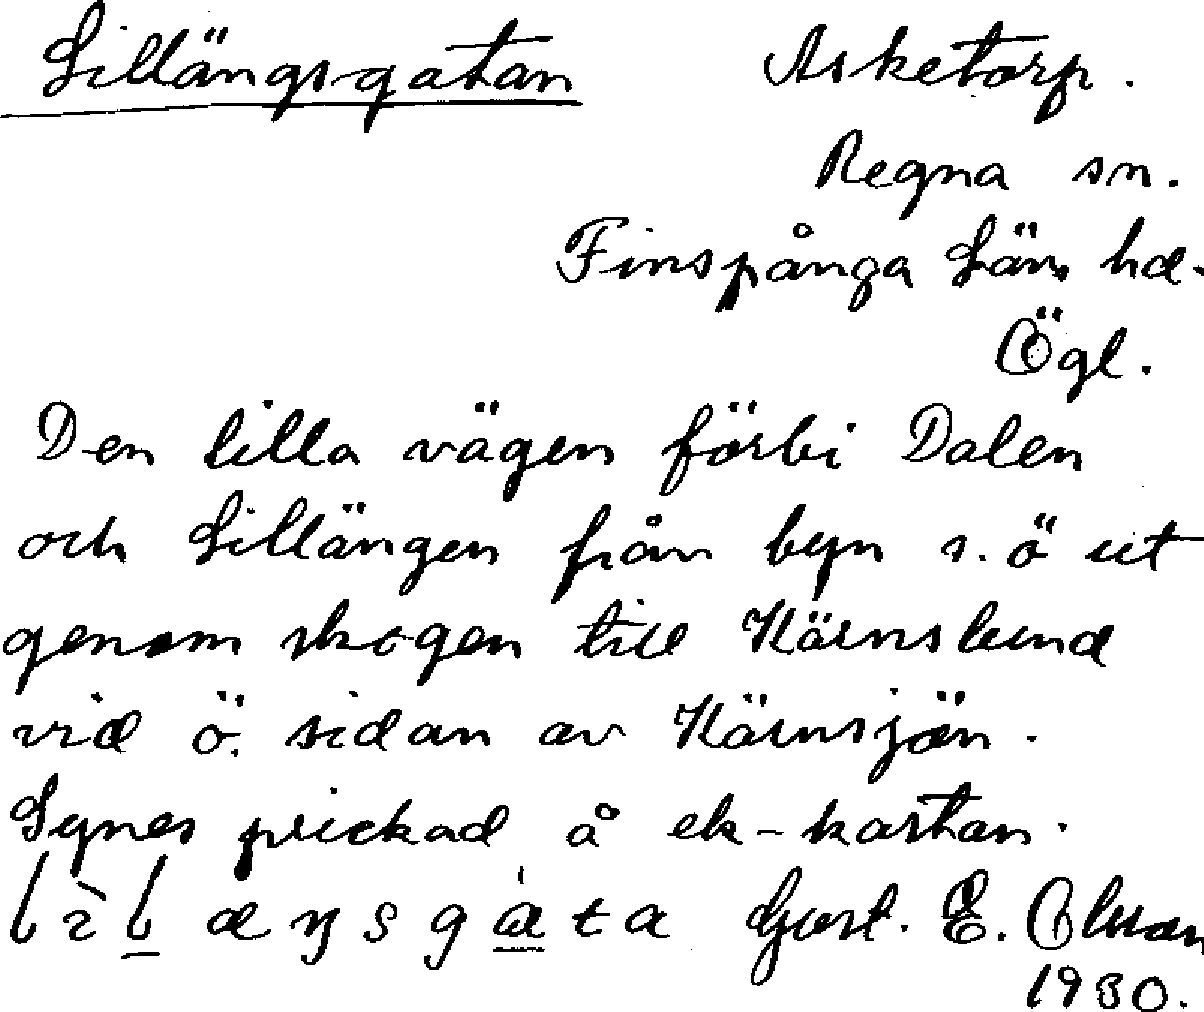 Lillängsgatan Asketorp.
Regna sn.
Finspånga Läns hd.
Ögl.
Den lilla vägen förbi Dalen
och Lillängen från byn s.ö ut
genom skogen till Kärnslund
vid ö. sidan av Kärnsjön.
Synes prickad å ek-kartan.
E. Olsson
1930.